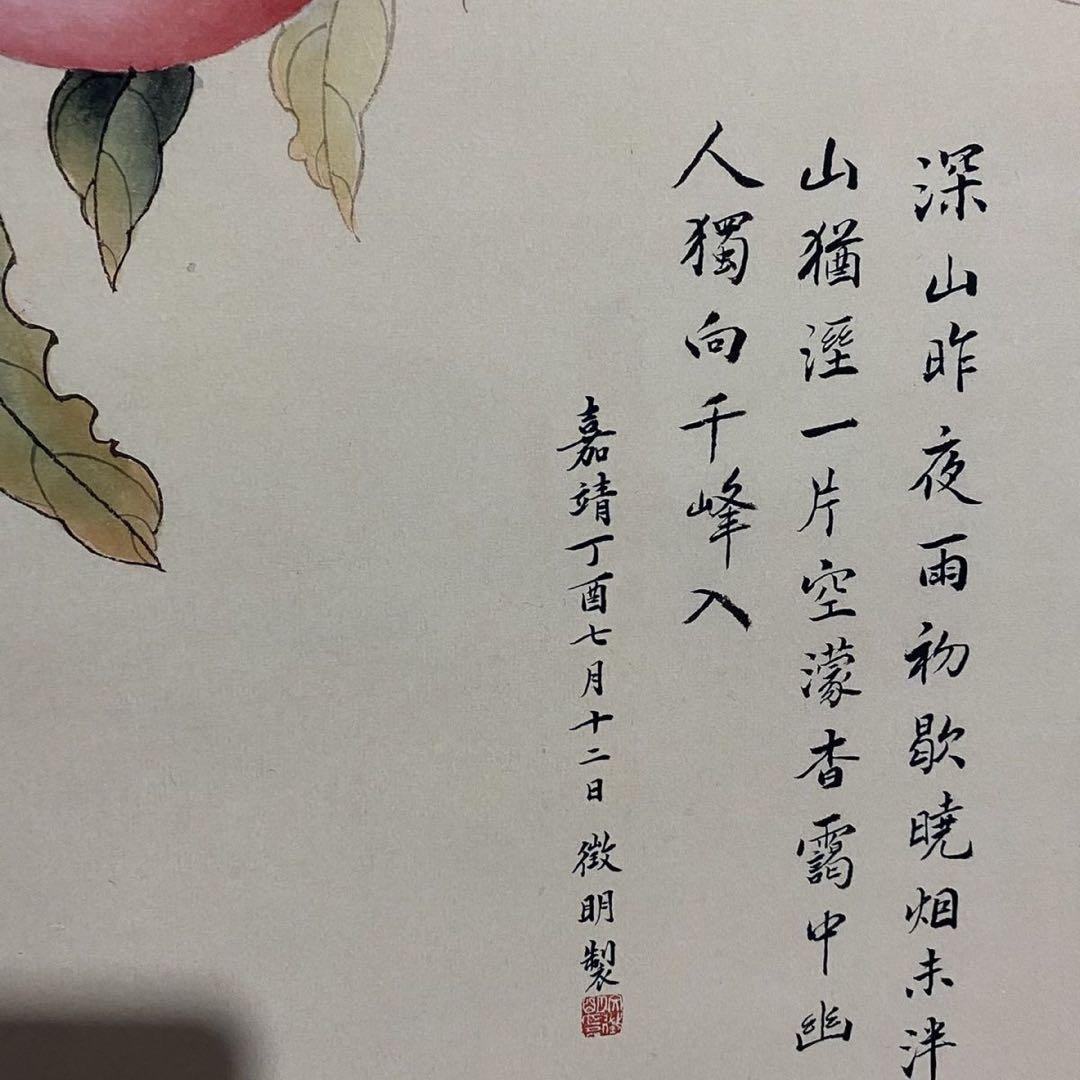 深山昨夜雨初歇曉烟未泮
山猶溼一片空濛杳靄中幽
人獨向千峰入
嘉靖丁酉七月十二日 徵明製